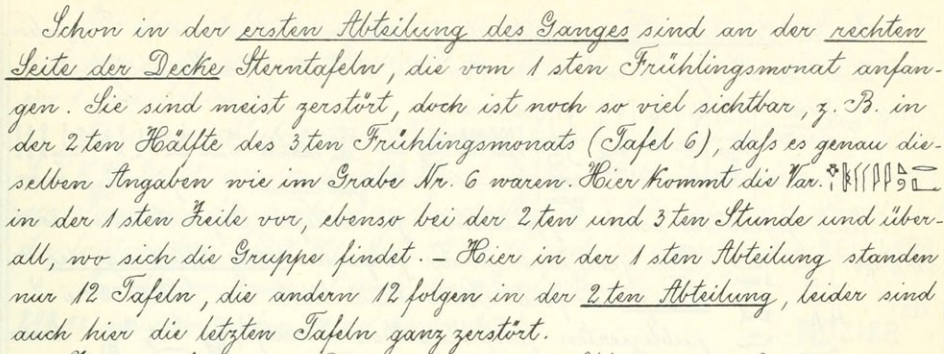 Schon in der ersten Abteilung des Ganges sind an der rechten
Seite der Decke Sterntafeln, die vom 1sten Frühlingsmonat anfan-
gen. Sie sind meist zerstört, doch ist noch so viel sichtbar, z. B. in
der 2ten Hälfte des 3ten Frühlingsmonats (Tafel 6), daß es genau die-
selben Angaben wie im Grabe Nr. 6 waren. Hier kommt die Var.
in der 1sten Zeile vor, ebenso bei der 2ten und 3ten Stunde und über-
all, wo sich die Gruppe findet. – Hier in der 1sten Abteilung standen
nur 12 Tafeln, die andern 12 folgen in der 2ten Abteilung, leider sind
auch hier die letzten Tafeln ganz zerstört.